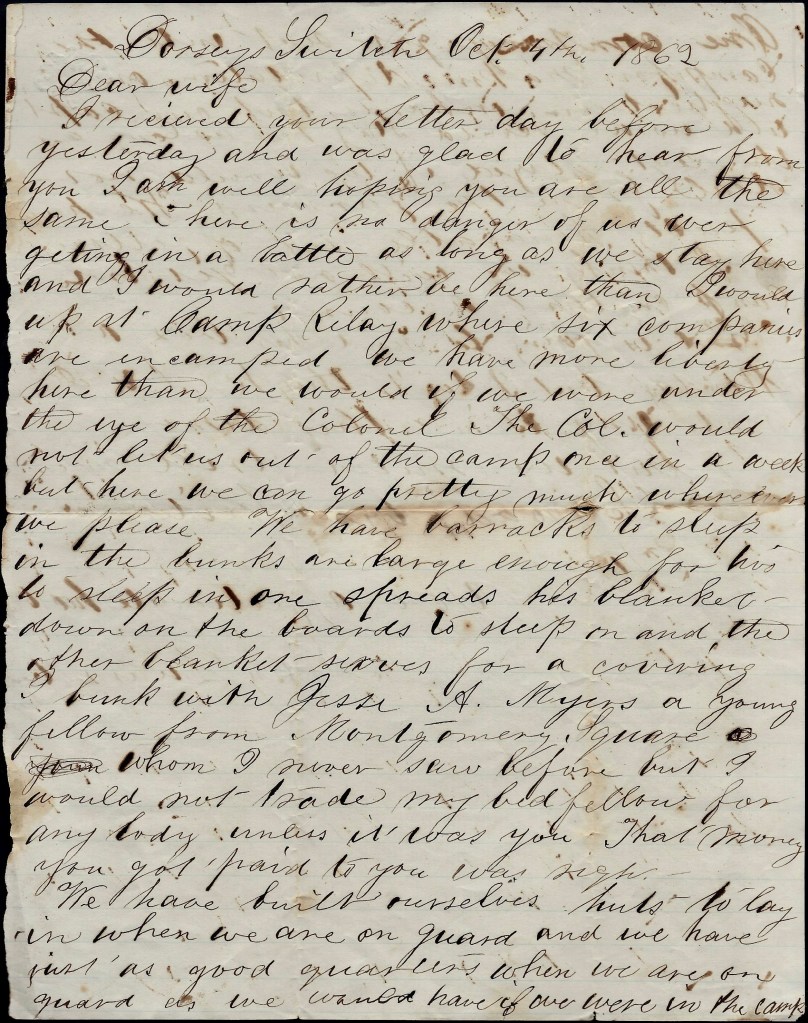 Dorseys Switch Oct. 4th. 1862
Dear wife
I recieved your letter day before
yesterday and was glad to hear from
you I am well hoping you are all the
same There is no danger of us ever
geting in a battle as long as we stay here
and I would rather be here than I would
up at Camp Relay where six companies
are incamped we have more liberty
here than we would if we were under
the eye of the Colonel The Col. would
not let us out of the camp once in a week
but here we can go pretty much where ever
we please. We have barracks to sleep
in the bunks are large enough for two
to sleep in one spreads his blanket
down on the boards to sleep on and the
other blanket serves for a covering
I bunk with Jesse A. Myers a young
fellow from Montgomery Square
whom I never saw before but I
would not trade my bed fellow for
any body unless it was you That money
you got paid to you was right
We have built ourselves huts to lay
in when we are on guard and we have
just as good quarters when we are on
guard as we would have if we were in the camp